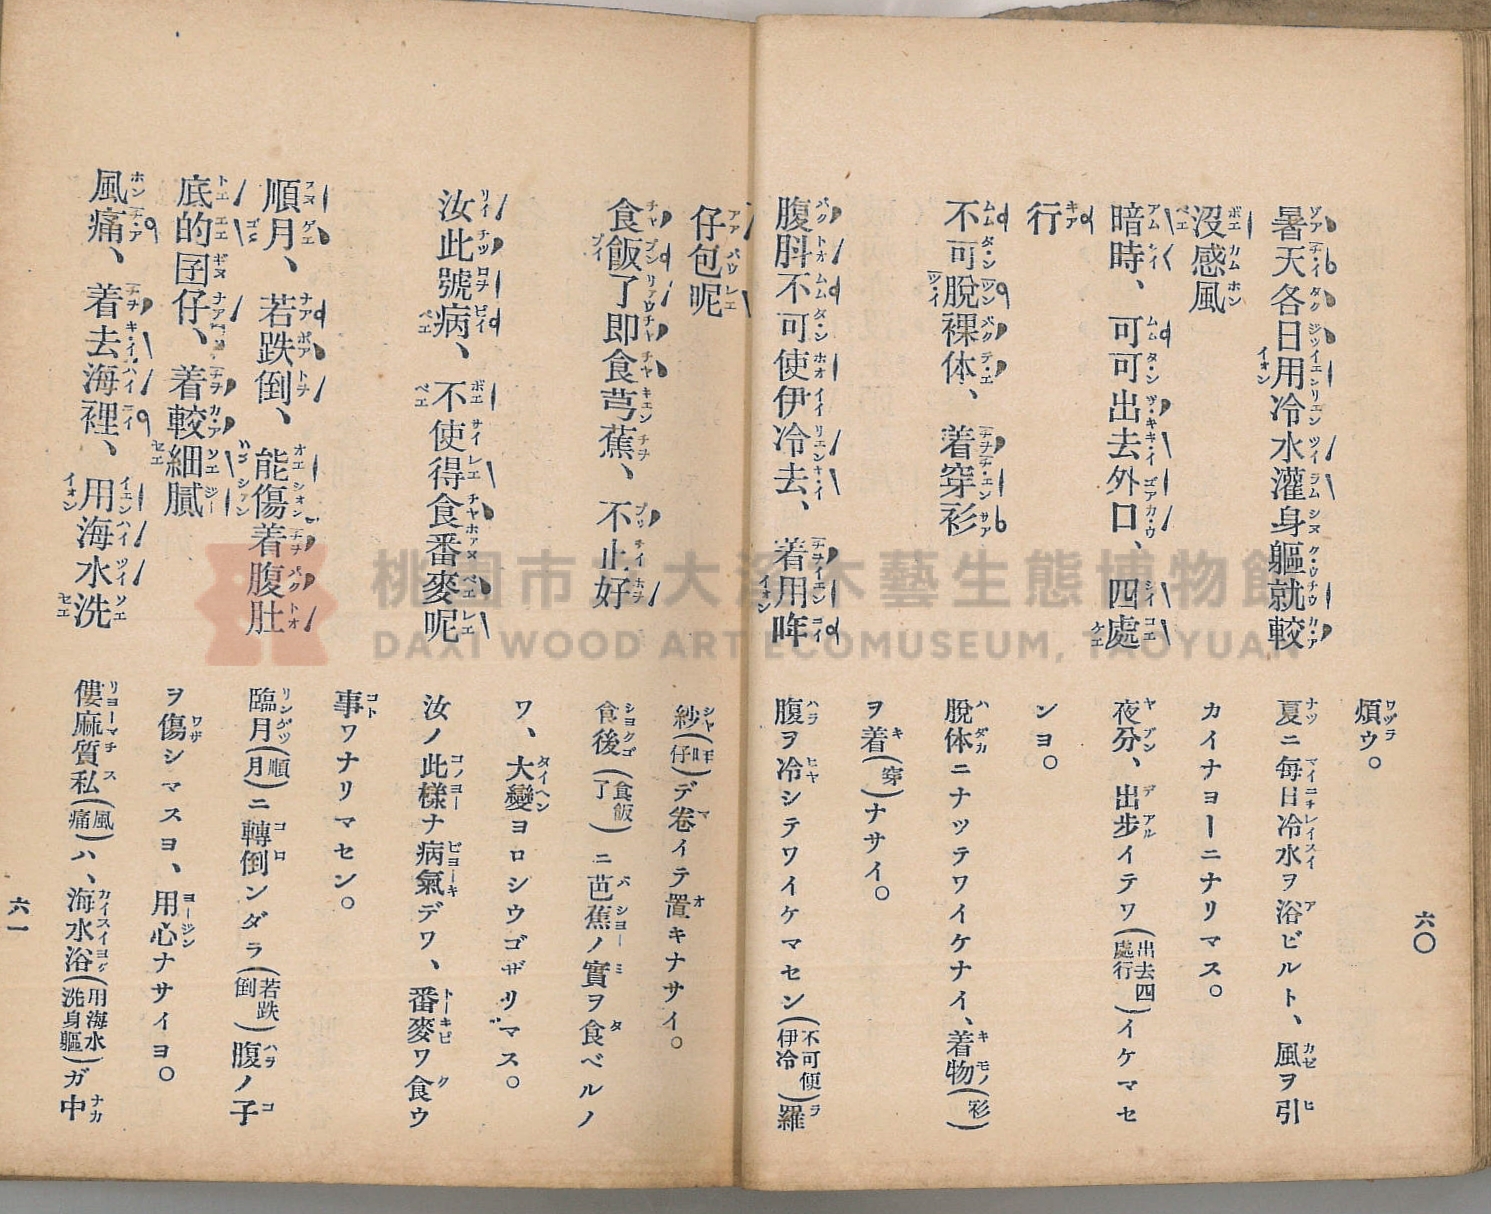 六〇
煩ウ。
暑天各日用冷水灌身軀就較
夏ニ每日冷水ヲ浴ビルト、風ヲ引
沒感風
カイナヨーニナリマス。
暗時、可可出去外口、四處
夜分、出步イテワ(出去四處行)イケマセ
行
ンヨ。
不可脫裸体、着穿衫
脫体ニナッテワイケナイ、着物(衫)
ヲ着(穿)ナサイ。
腹肚不可使伊冷去、着用哖
腹ヲ冷シテワイケマセン(不可使伊冷)羅
仔包呢
紗(哖仔)デ卷イテ置キナサイ。
食飯了即食芎蕉、不止好
食後(食飯了)ニ芭蕉ノ實ヲ食ベルノ
ワ、大變ヨロシウゴザリマス。
汝此號病、不使得食番麥呢
汝ノ此樣ナ病氣デワ、番麥ワ食ウ
事ワナリマセン。
順月、若跌倒、能傷着腹肚
臨月(順月)ニ轉倒ンダラ(若跌倒)腹ノ子
底的囝仔、着較細膩
ヲ傷シマスヨ、用心ナサイヨ。
風痛、着去海裡、用海水洗
僂麻質私(風痛)ハ、海水浴(用海水洗身軀)ガ中
六一
桃園市立大溪木藝生態博物館
DAXI WOOD ART ECOMUSEUM, TAOYUAN